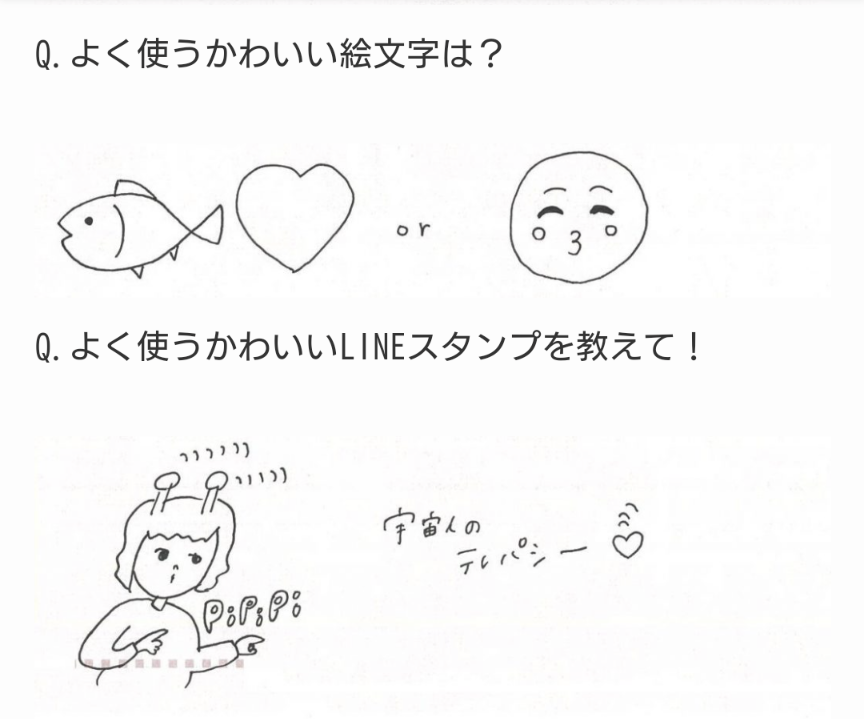 Q.よく使うかわいい絵文字は？
or
Q.よく使うかわいいLINEスタンプを教えて！
宇宙人の
テレパシー
PiPiPi